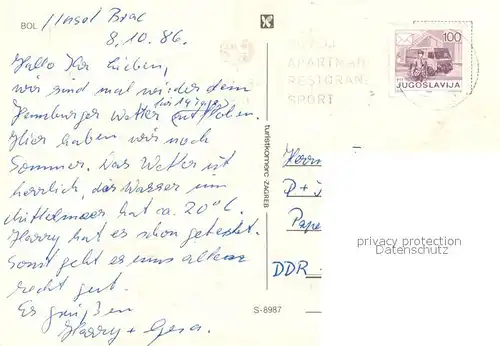 BOL / Insel Brac
8.10.86.
Hallo Ihr Lieben,
wir sind mal wieder dem
Hamburger Wetter für 14 Tage entflohen.
Hier haben wir noch
Sommer. Das Wetter ist
herrlich, das Wasser im
Mittelmeer hat ca. 20° C.
Harry hat es schon getestet.
Sonst geht es uns allen
recht gut.
Es grüßen
Harry + Gesa.
turistkomerc - ZAGREB
S-8987
APARTMAN
RESTORAN
SPORT
100
JUGOSLAVIJA
Herrn
D +
Pape
DDR -
privacy protection
Datenschutz